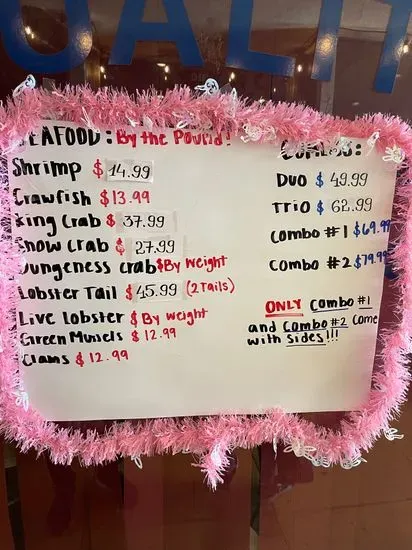 UALIT
SEAFOOD: By the Pound!
Shrimp $ 14.99
Crawfish $13.99
King Crab $ 37.99
Snow Crab $ 27.99
Dungeness crab $By Weight
Lobster Tail $ 45.99 (2 Tails)
Live Lobster $ By Weight
Green Mussels $ 12.99
Clams $ 12.99
COMBOS:
DUO $ 49.99
TRIO $ 62.99
Combo #1 $69.99
Combo #2 $79.99
ONLY Combo #1
and Combo #2 come
with sides!!!